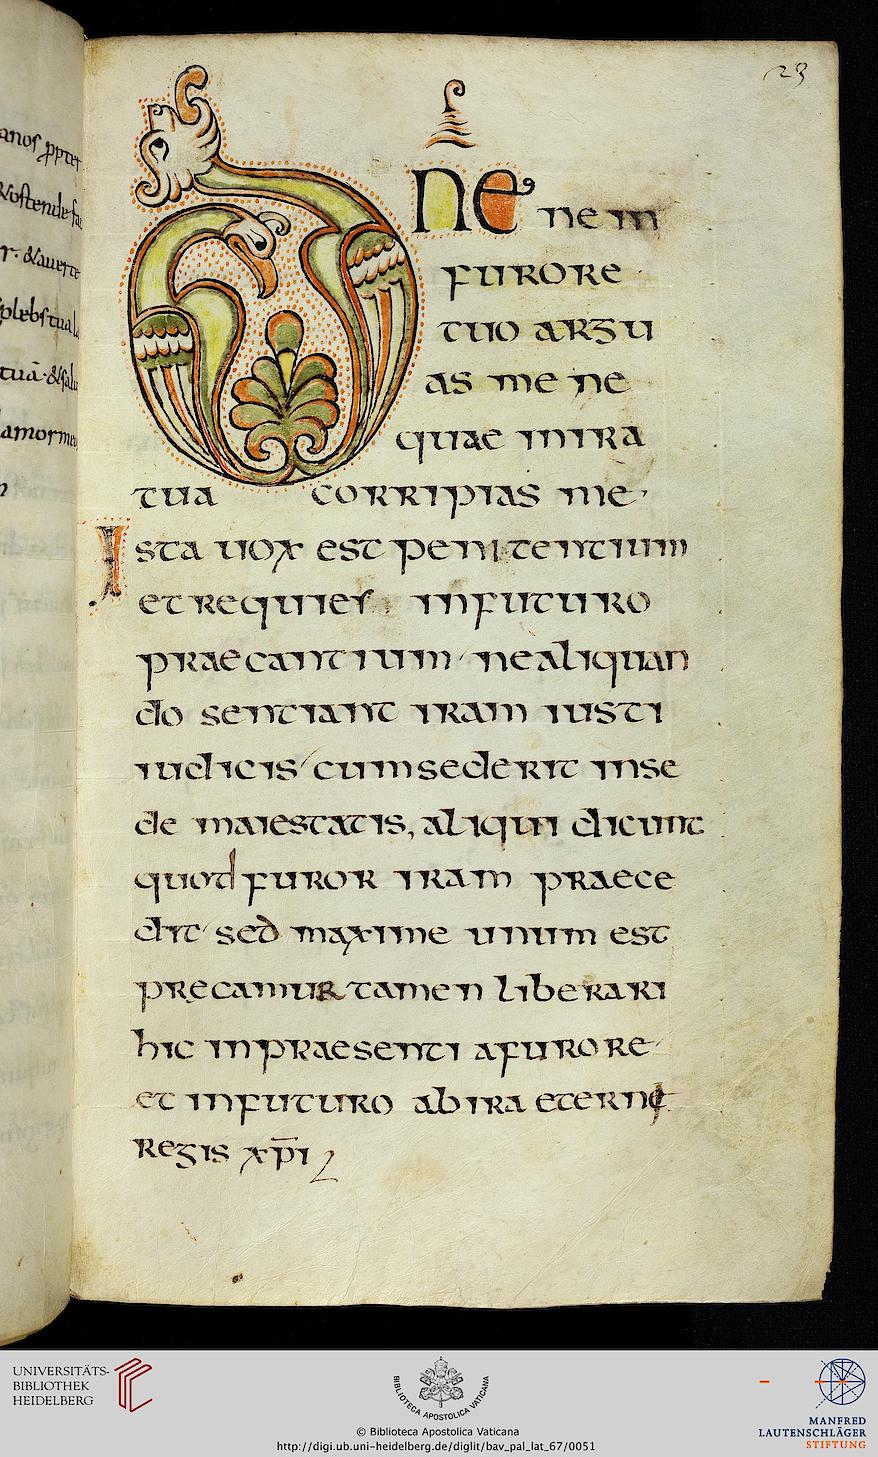 23
Dne ne in
furore
tuo argu
as me ne
quae in ira
tua corripias me
Ista uox est penitentium
et requies in futuro
praecantium ne aliquan
do sentiant iram iusti
iudicis cum sederit in se
de maiestatis, aliqui dicunt
quod furor iram praece
dit sed maxime unum est
precamur tamen liberari
hic in praesenti a furore
et in futuro ab ira eternę
regis xp̅i
anos ꝓpter
& ostende fa
r. & auerte
plebs tua l
tuā. & salu
lamor me
UNIVERSITÄTS-
BIBLIOTHEK
HEIDELBERG
BIBLIOTECA APOSTOLICA VATICANA
© Biblioteca Apostolica Vaticana
http://digi.ub.uni-heidelberg.de/diglit/bav_pal_lat_67/0051
MANFRED
LAUTENSCHLÄGER
STIFTUNG